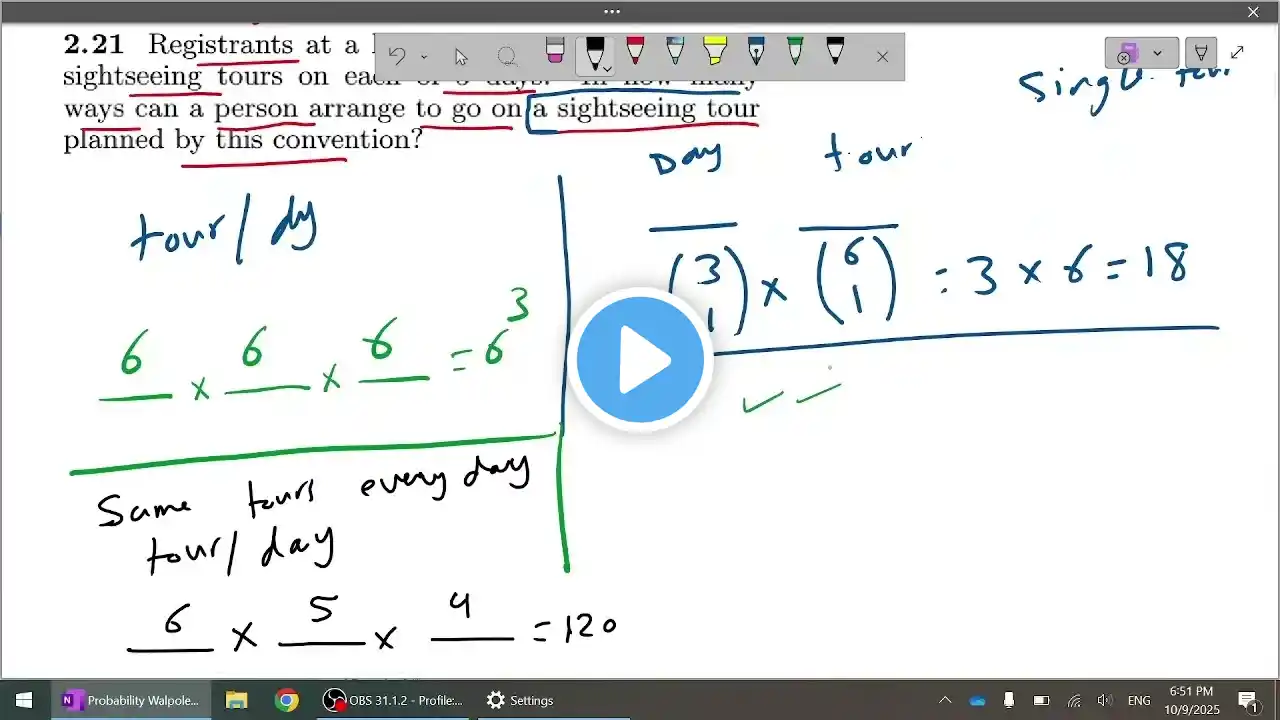 2.21 Registrants at a
sightseeing tours on each of 3 days.
ways can a person arrange to go on a sightseeing tour
planned by this convention?
Single tour
Day tour
(3 1) × (6 1) = 3 × 6 = 18
tour/dy
6 × 6 × 6 = 6³
Same tours every day
tour/day
6 × 5 × 4 = 120
Probability Walpole...
OBS 31.1.2 - Profile:...
Settings
ENG
6:51 PM
10/9/2025
1